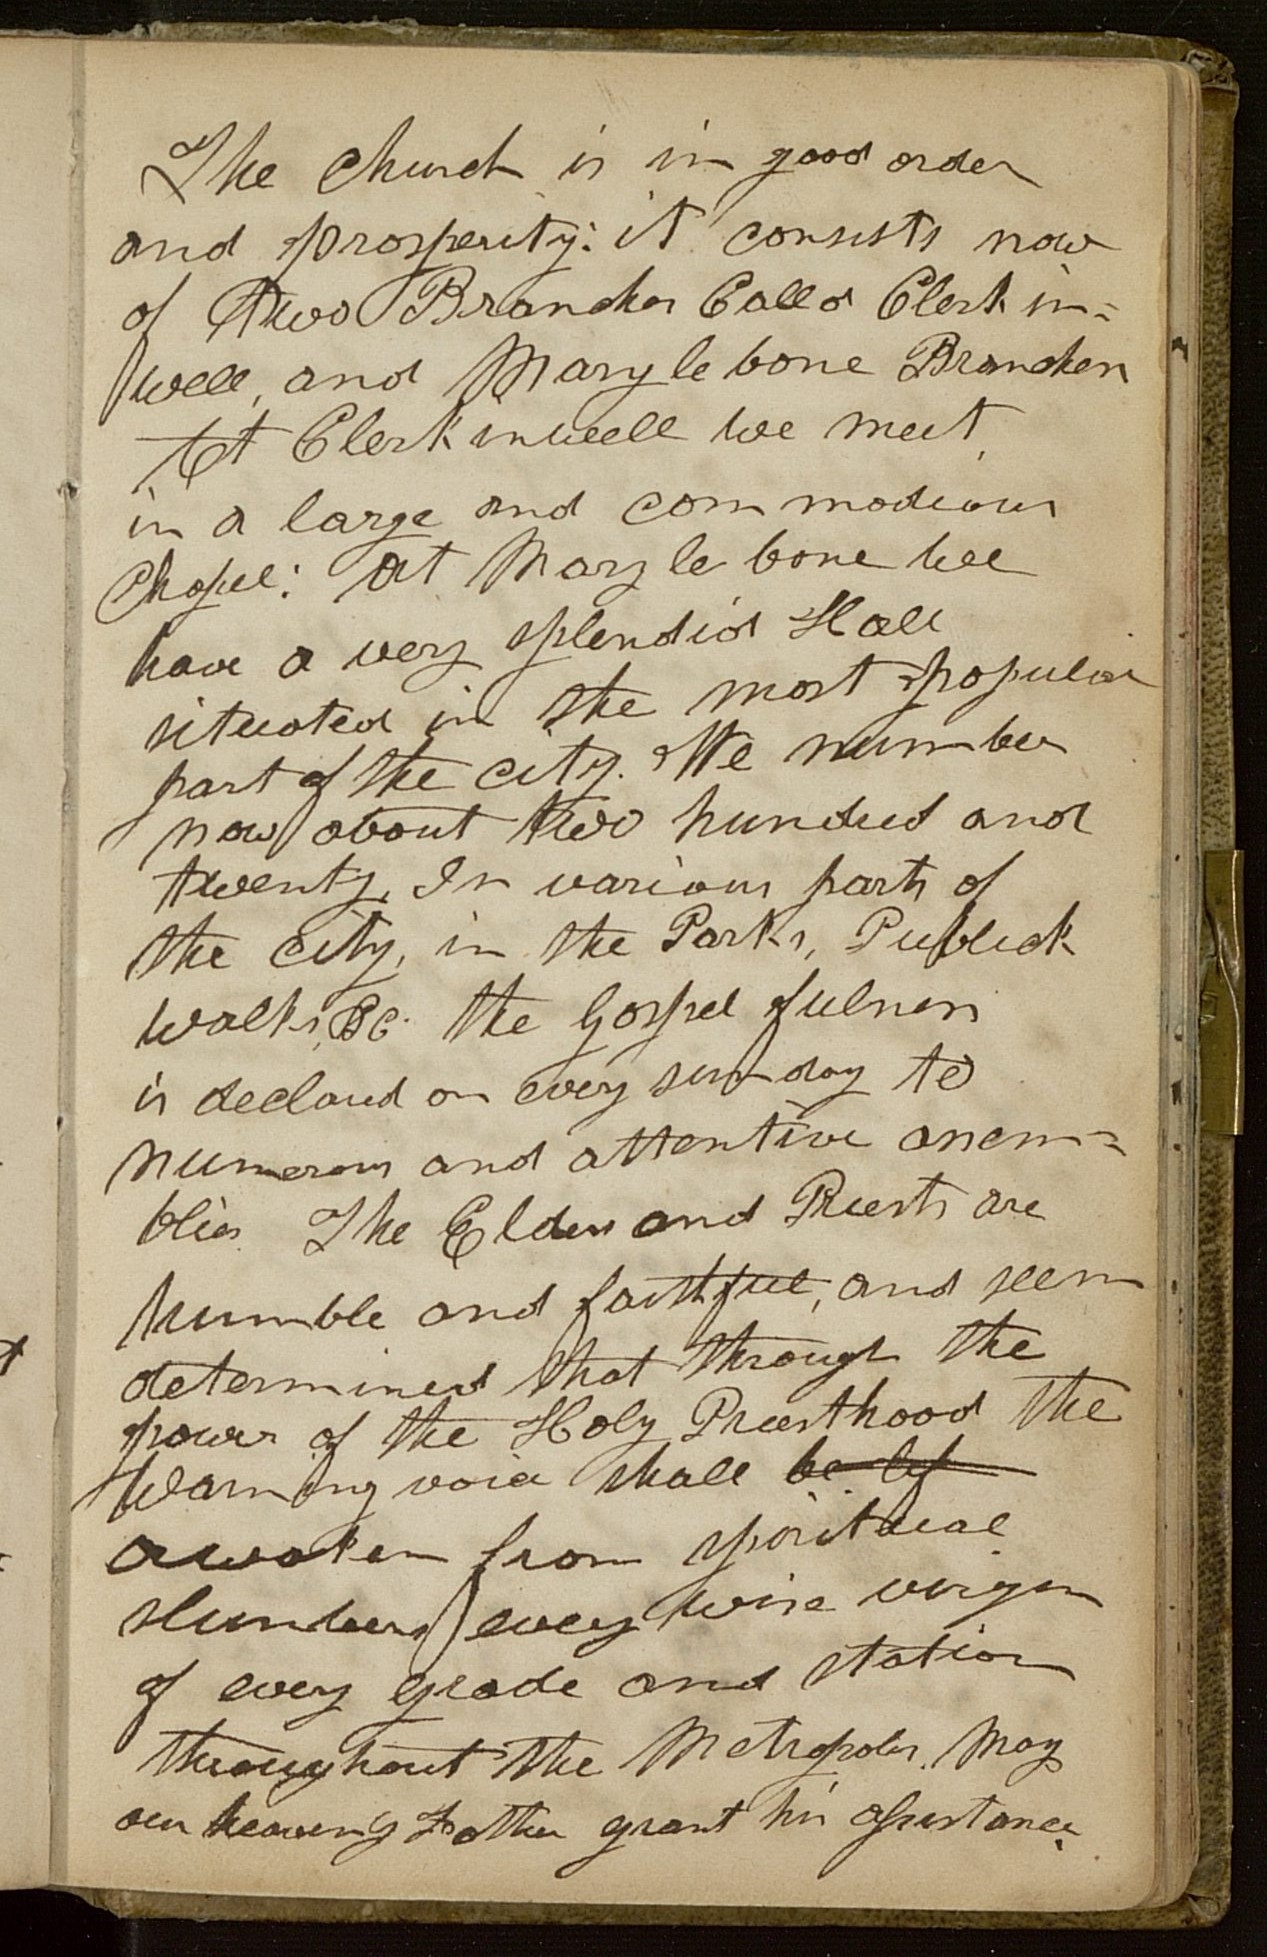 The Church is in good order
and prosperity: it consists now
of two Branches Calld Clerkin=
well, and Marylebone Branches
At Clerkinwell we meet
in a large and commodious
Chapel: At Marylebone we
have a very splendid Hall
situated in the most popular
part of the city. We number
now about two hundred and
twenty, In various parts of
the city, in the Parks, Publick
walks, &c. the Gospel fulness
is declared on every sunday to
numerous and attentive assem=
blies. The Elders and Priests are
humble and faithful, and seem
determined that through the
power of the Holy Priesthood the
Warning voice shall be lif
awaken from spiritual
slumbers every wise virgin
of every grade and station
throughout the Metropolis. May
our heavenly Father grant his assistance